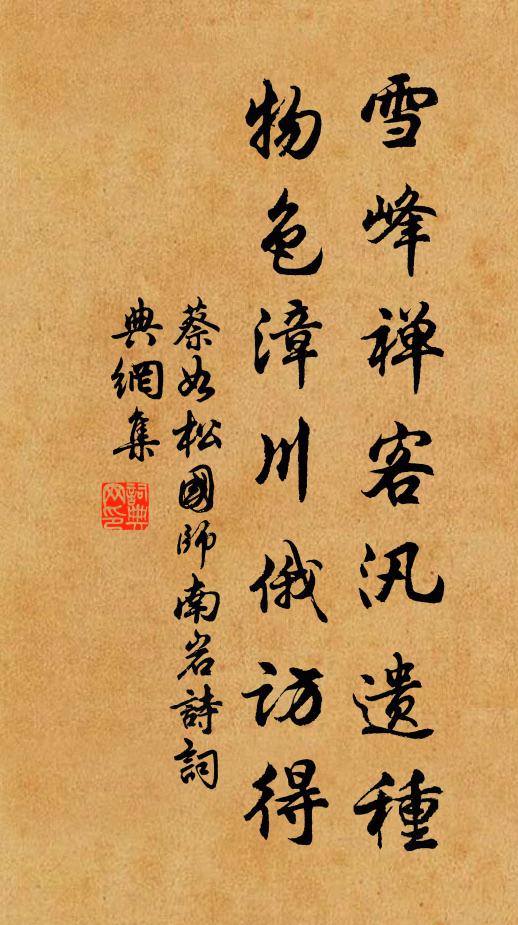 雪峰禅客汎遗種
物色漳川俄访得
蔡如松國师南岩詩詞
典網集
詞典
网印